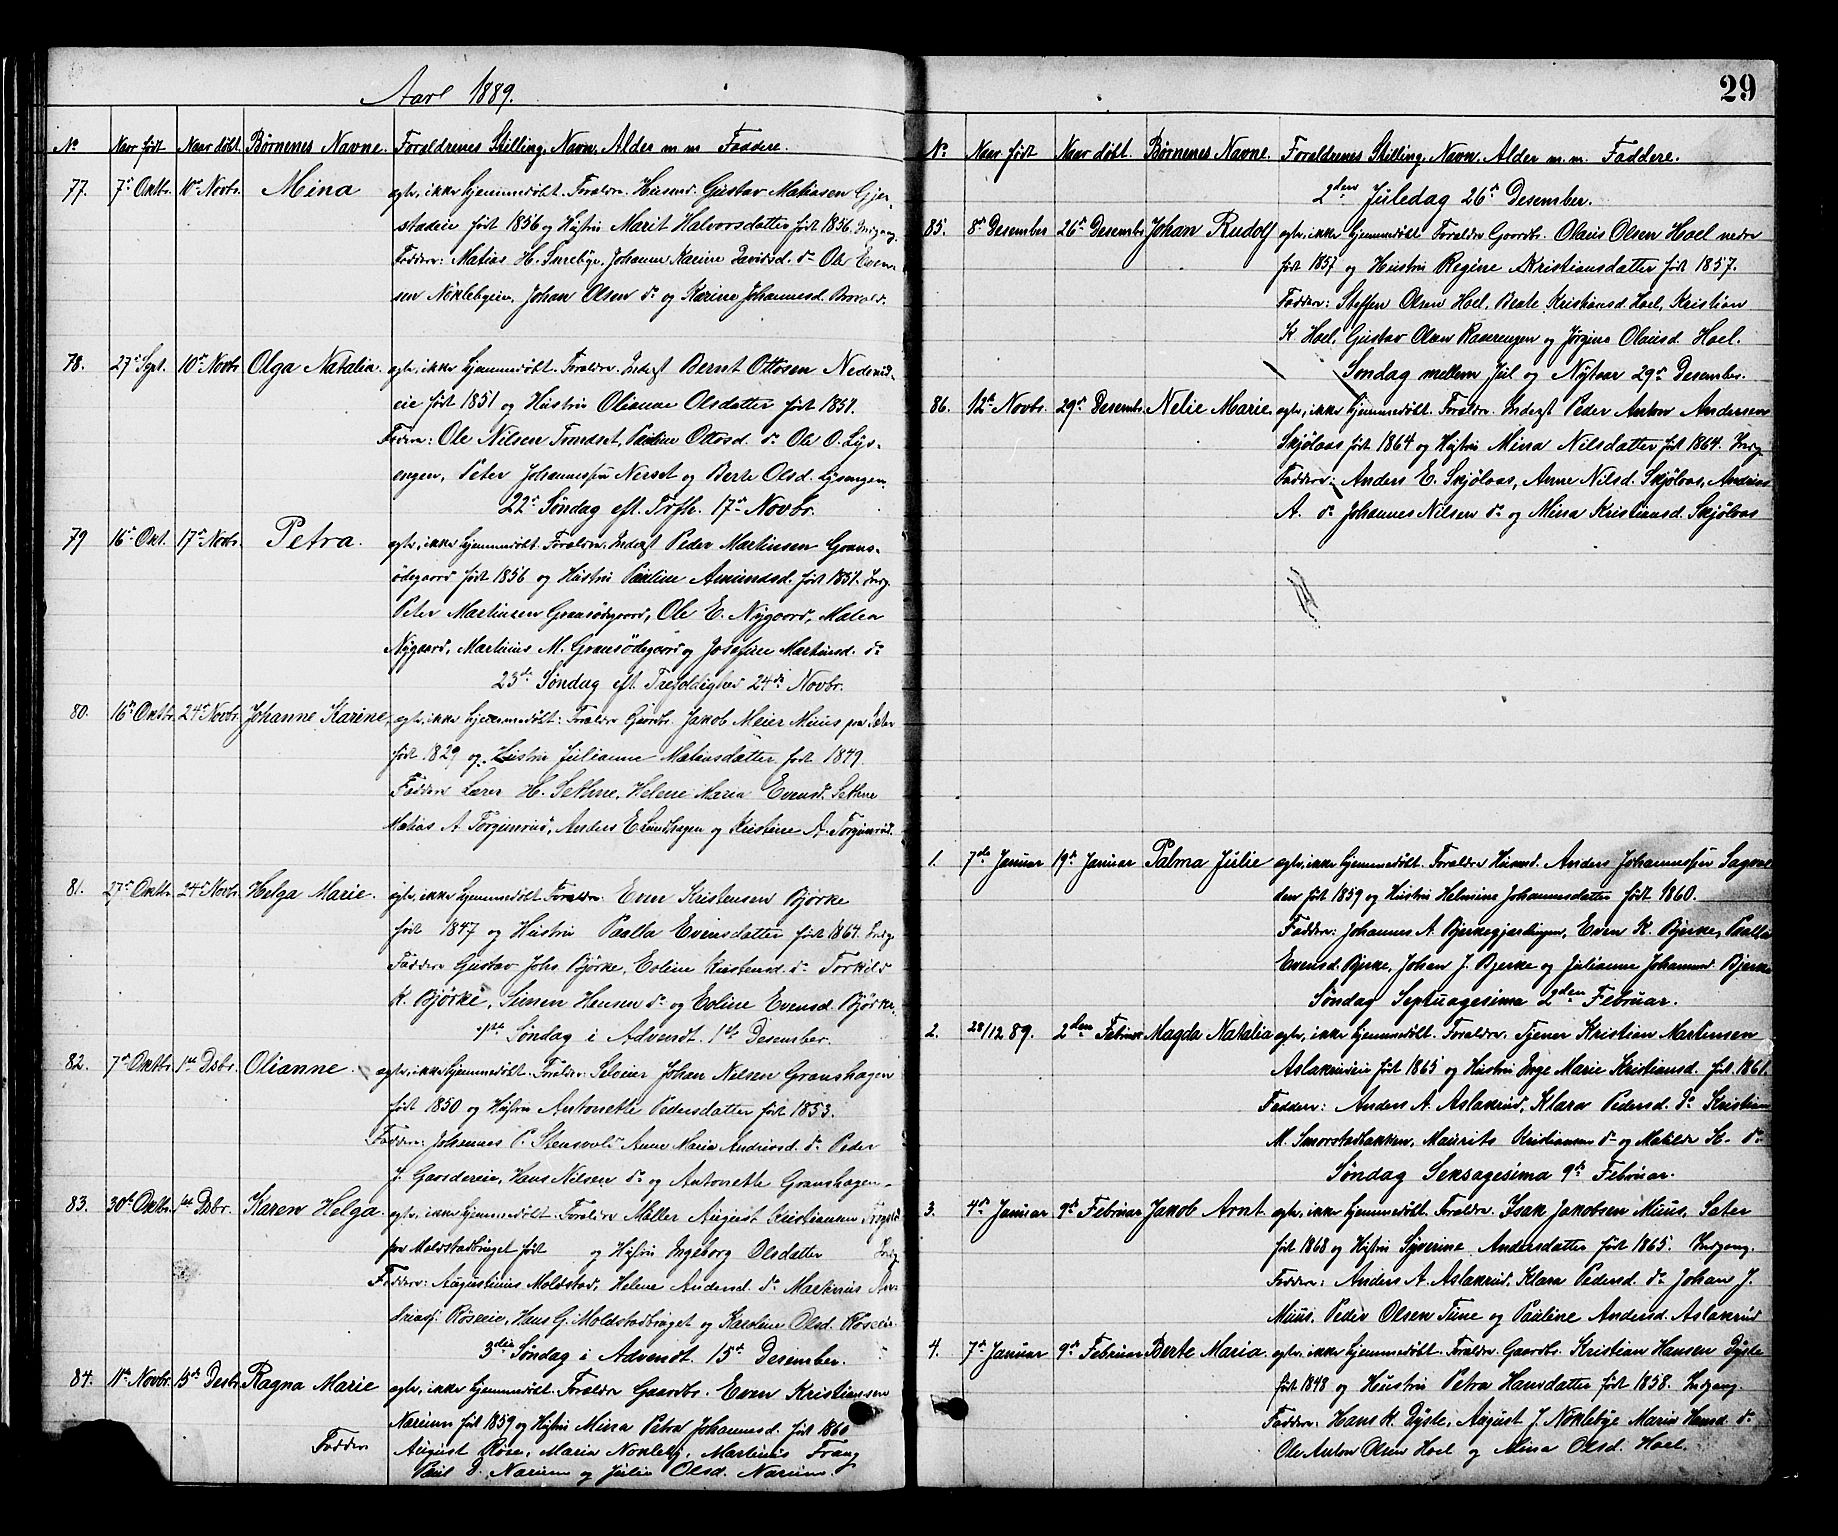 Aar 1889.
No Naar født Naar døbt. Børnenes Navne. Forældrenes Stilling, Navn, Alder m. m. Faddere.
77. 7de Oktbr. 10de Novbr. Mina ægte, ikke hjemmedøbt. Forældre. Husmd. Gustav Matiasen Gjer-
stadeie født 1856 og Hustru Marit Halvorsdatter født 1856. Indgang.
Faddere: Matias H. Smeby, Johanne Karine Davidsd. do Ole Even-
sen Nøklebyeie, Johan Olsen do og Karine Johannesd.
78. 27de Sept. 10de Novbr. Olga Natalia. ægte, ikke hjemmedøbt. Forældre. Inderst Bernt Ottosen
eie født 1851 og Hustru Oliane Olsdatter født 1851.
Faddere: Ole Nilsen Trondset, Pauline Ottosd. do Ole O. Lys-
engen, Peter Johannessen Nerset og Berte Olsd. Lysengen.
22de Søndag eft. Trefh. 17de Novbr.
79 16de Okt. 17de Novbr. Petra. ægte, ikke hjemmedøbt. Forældre. Inderst Peder Martinsen Grans-
ødegaard født 1856 og Hustru Pauline Amundsd. født 1851. Indg.
Peter Martinsen Gransødegaard, Ole E. Nygaard, Malea
Nygaard, Martinus M. Gransødegaard og Josefine Martinsd. do
23de Søndag eft. Trefoldighed 24de Novbr.
80. 16de Oktbr. 24de Novbr. Johanne Karine ægte, ikke hjemmedøbt. Forældre Gaardbr. Jakob Meier Muus paa Sater
født 1829 og Hustru Julianne Matiasdatter født 1849
Faddere Lærer H. Sethne, Helene Maria Evensd. Sethne
Matias A. Torgunrud, Anders E. Lundhagen og Kristine A. Torgunrud.
81. 27de Oktbr. 24de Novbr. Helga Marie. ægte, ikke hjemmedøbt Forældre. Even Kristensen Bjørke
født 1847 og Hustru Paalla Evensdatter født 1864. Indg.
Faddere Gustav Johs. Bjørke, Eoline Kristensd. do Torkild
K. Bjørke, Simen Hansen do og Eoline Evensd. Bjørke.
1ste Søndag i Advendt. 1ste Desember.
82. 7de Oktbr. 1ste Dsbr. Olianne. ægte, ikke hjemmedøbt. Forældre Selveier Johan Nelsen Granshagen
født 1850 og Hustru Antonette Pedersdatter født 1853.
Faddere: Johannes P. Stensvold Anne Maria Andersd. do Peder
J. Gaardereie, Hans Nilsen do og Antonette Granshagen.
83. 30te Oktbr. 1ste Dsbr. Karen Helga. ægte, ikke hjemmedøbt. Forældre Møller August Kristiansen
paa Molstadbruget født og Hustru Ingeborg Olsdatter Indg.
Faddere: Augustinus Molstad, Helene Andersd. do Martinus
Røseeie, Hans G. Molstadbruget og Karoline Olsd. Røseeie
3die Søndag i Advendt. 15de Desember.
84. 11te Novbr. 15de Desbr. Ragna Marie ægte, ikke hjemmedøbt. Forældre Gaardbr. Even Kristiansen
Narum født 1859 og Hustru Mina Petra Johannesd. født 1860
Faddere August Røse, Maria Nøkleby, Martinus Frang
Paul D. Narum og Julia Olsd. Narum.
29
No. Naar født Naar døbt. Børnenes Navne. Forældrenes Stilling, Navn, Alder m. m. Faddere.
2den Juledag 26de Desember.
85. 8de Desember 26de Desembr. Johan Rudolf ægte, ikke hjemmedøbt. Forældre Gaardbr. Olaus Olsen Hoel nedre
født 1857 og Hustru Regine Kristiansdatter født 1857.
Faddere: Steffen Olsen Hoel, Beate Kristiansd. Hoel, Kristian
K. Hoel, Gustav Olsen Raaerengen og Jørgine Olausd. Hoel.
Søndag mellem Jul og Nytaar 29de Desember.
86. 12te Novbr. 29de Desembr. Nelie Marie. ægte, ikke hjemmedøbt. Forældre. Inderst Peder Anton Andersen
Skjølaas født 1864 og Hustru Mina Nilsdatter født 1864. Indg.
Faddere: Anders E. Skjølaas, Anne Nilsd. Skjølaas, Andreas
A. do Johannes Nilsen do og Mina Kristiansd. Skjølaas
1. 7de Januar 19de Januar Palma Julie ægte, ikke hjemmedøbt. Forældre Husmd. Anders Johannessen Sagvol-
den født 1859 og Hustru Helmine Johannesdatter født 1860.
Faddere: Johannes A. Bjerkegjerdingen, Even K. Bjerke, Paalla
Evensd. Bjerke, Johan J. Bjerke og Julianne Johannesd. Bjerke
Søndag Septuagesima 2den Februar.
2. 28/12 89. 2den Februar Magda Natalia ægte, ikke hjemmedøbt. Forældre. Tjener Kristian Martinsen
Aslakrudeie født 1865 og Hustru Inge Marie Kristiansd. født 1861.
Faddere: Anders A. Aslakrud, Klara Pedersd. do Kristian
M. Smorstadbakken, Maurits Kristiansen do og Matilde K. do
Søndag Seksagesima 9de Februar.
3. 4de Januar 9de Februar Jakob Arnt. ægte, ikke hjemmedøbt. Forældre. Isak Jakobsen Muus, Sater
født 1868 og Hustru Syverine Andersdatter født 1865. Indgang.
Faddere: Anders A. Aslakrud, Klara Pedersd. do Johan J.
Muus, Peder Olsen Tune og Pauline Andersd. Aslakrud
4. 7de Januar 9de Februar Berte Maria. ægte, ikke hjemmedøbt. Forældre. Gaardbr. Kristian Hansen Dyste
født 1848 og Hustru Petra Hansdatter født 1858. Indgang.
Faddere: Hans K. Dyste, August J. Nøklebye Maria Hansd. do
Ole Anton Olsen Hoel og Alina Olsd. Hoel.